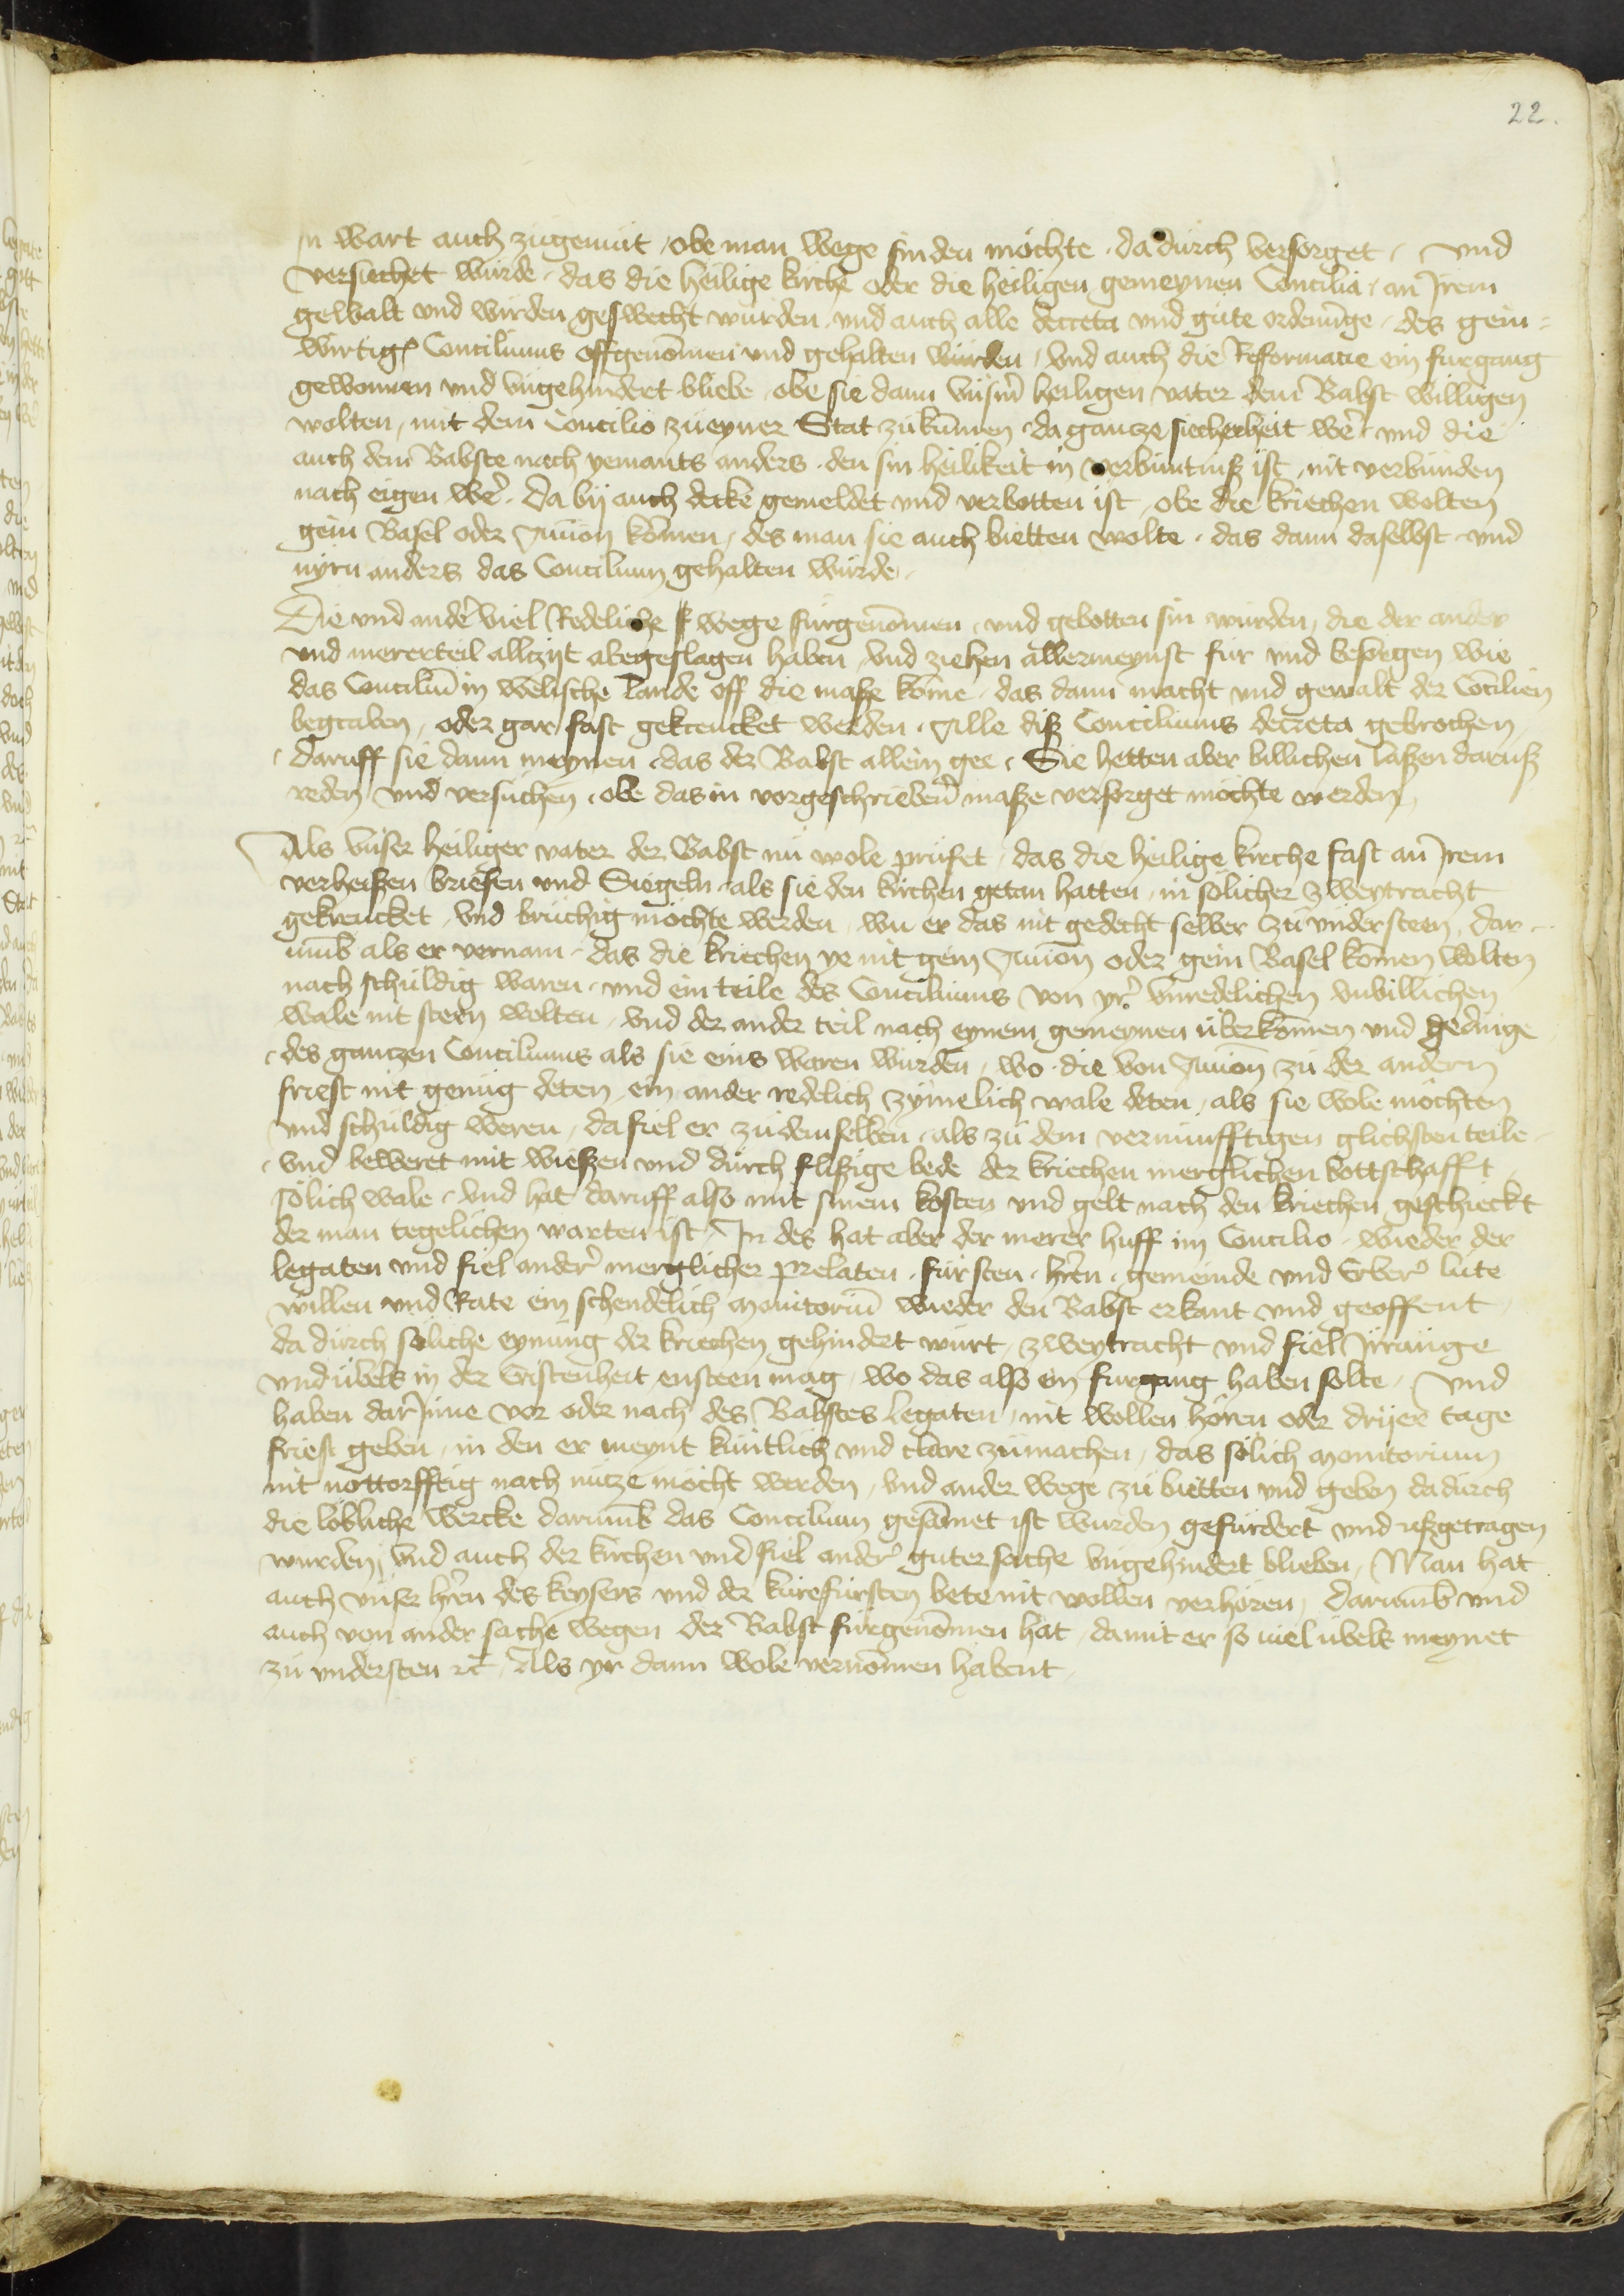 22.
In wart auch zugemut / obe man wege finden mochte · da durch versorget / vnd
versiechet wurde · das die heilige kirche oder die heiligen gemeynen Concilia / an Jrem
gewalt vnd wirden geswecht wurden · vnd auch alle decreta vnd gute ordenu̅ge / des gein=
wirtigen Conciliums offgeno̅men vnd gehalten wurden / vnd auch die Reformacie ein furgang
gewonnen vnd vngehindert bliebe / obe sie dann vnserm heiligen vater dem Babst willigen
wolten / mit dem Concilio zu eyner Stat zu kummen · da gantze siecherheit wer / vnd die
auch dem Babste nach yemants anders · den sin heilikeit in verbuntniß ist / nit verbunden
nach eigen wer · Da bij auch decke gemeldet vnd verbotten ist / obe die kriechen wolten
gein Basel oder Auion ko̅men / des man sie auch bietten wolte · das dann daselbst vnd
nyrn anders das Concilium gehalten wurde ·
Die vnd ander viel Redeliche wege furgeno̅men / vnd gebotten sin wurden / die der ander
vnd mererteil allczijt abegeslagen haben / vnd ziehen allermeynst fur vnd besorgen wie
das Conciliu̅ in welische lande off die maße ko̅me · das dann macht vnd gewalt der Co̅cilien
begraben / oder gar fast gekrencket werden · Alle diß Conciliums decreta gebrochen
/ daruff sie dann meynen / das der Babst allein gee / Sie hetten aber billichen laßen daruß
reden vnd versuchen / obe das in vorgeschrieben̅ maße versorget möchte werden /
Als vnser heiliger vater der Babst nu wole prufet / das die heilige kirche fast an Jrem
verheißen briefen vnd Siegeln / als sie den kirchen getan hatten / in solicher zweytracht
gekrencket / vnd bruchig möchte werden / wu er das nit gedecht selber zu vndersteen / dar
umb als er vernam / das die kriechen ye nit gein Auion oder gein Basel ko̅men wolten
nach schuldig waren / vnd ein teile des Conciliums von yr vnredelichen vnbillichen
wale nit steen wolten / vnd der ander teil nach eynem gemeynen vberko̅men vnd gedinge
/ des gantzen Conciliums als sie eins waren wurden / wo die von Auion zu der andern
friest nit genug deten / ein ander redelich zymelich wale deten / als sie wole mochten
vnd schuldig weren / da fiel er zu demselben / als zu dem vernunfftigen glichsten teile
/ vnd beweret mit wießen vnd durch flißige bede der kriechen merglichen bottschafft
solich wale / vnd hat daruff also mit sinem kosten vnd gelt nach den kriechen geschieckt
der man tegelichen warten ist / In des hat aber der merer huff im Concilio / wieder der
legaten vnd fiel ander merglicher prelaten · fursten · hern · gemeinde vnd Erber lute
willen vnd Rate ein schendelich monitoriu̅ wieder den Babst erkant vnd geoffent
da durch soliche eynung der kriechen gehindert wurt / zweytracht vnd fiel Irrunge
vnd vbels in der Cristenheit ensteen mag / wo das also ein furgang haben solte / Vnd
haben dar Jnne vor oder nach des Babstes legaten / nit wollen hören oder drijer tage
friest geben / in den er meynt kuntlich vnd clare zumachen / das solich monitorium
nit nottorfftig nach nutze mocht werden / vnd ander wege zu bietten vnd geben dadurch
die lobliche wercke darumb das Concilium gesa̅met ist wurden gefurdert vnd ußgetragen
wurden / vnd auch der kirchen vnd fiel ander guter sache vngehindert blieben / Man hat
auch vnser hern des keysers vnd der kurefursten bete nit wollen verhören / Darumb vnd
auch von ander sache wegen der Babst furgeno̅men hat / damit er so uiel vbels meynet
zu vndersteen etc / Als yr dann wole verno̅men habent /